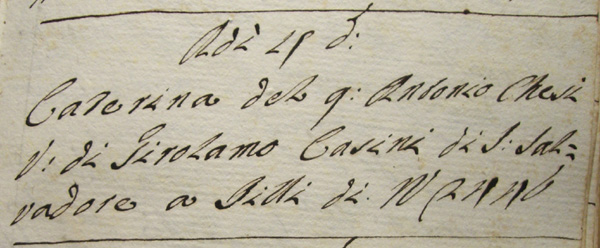 Adì 25 d:
Caterina del q: Antonio Chesi
V: di Girolamo Casini di S: Sal=
vadore a Pitti di